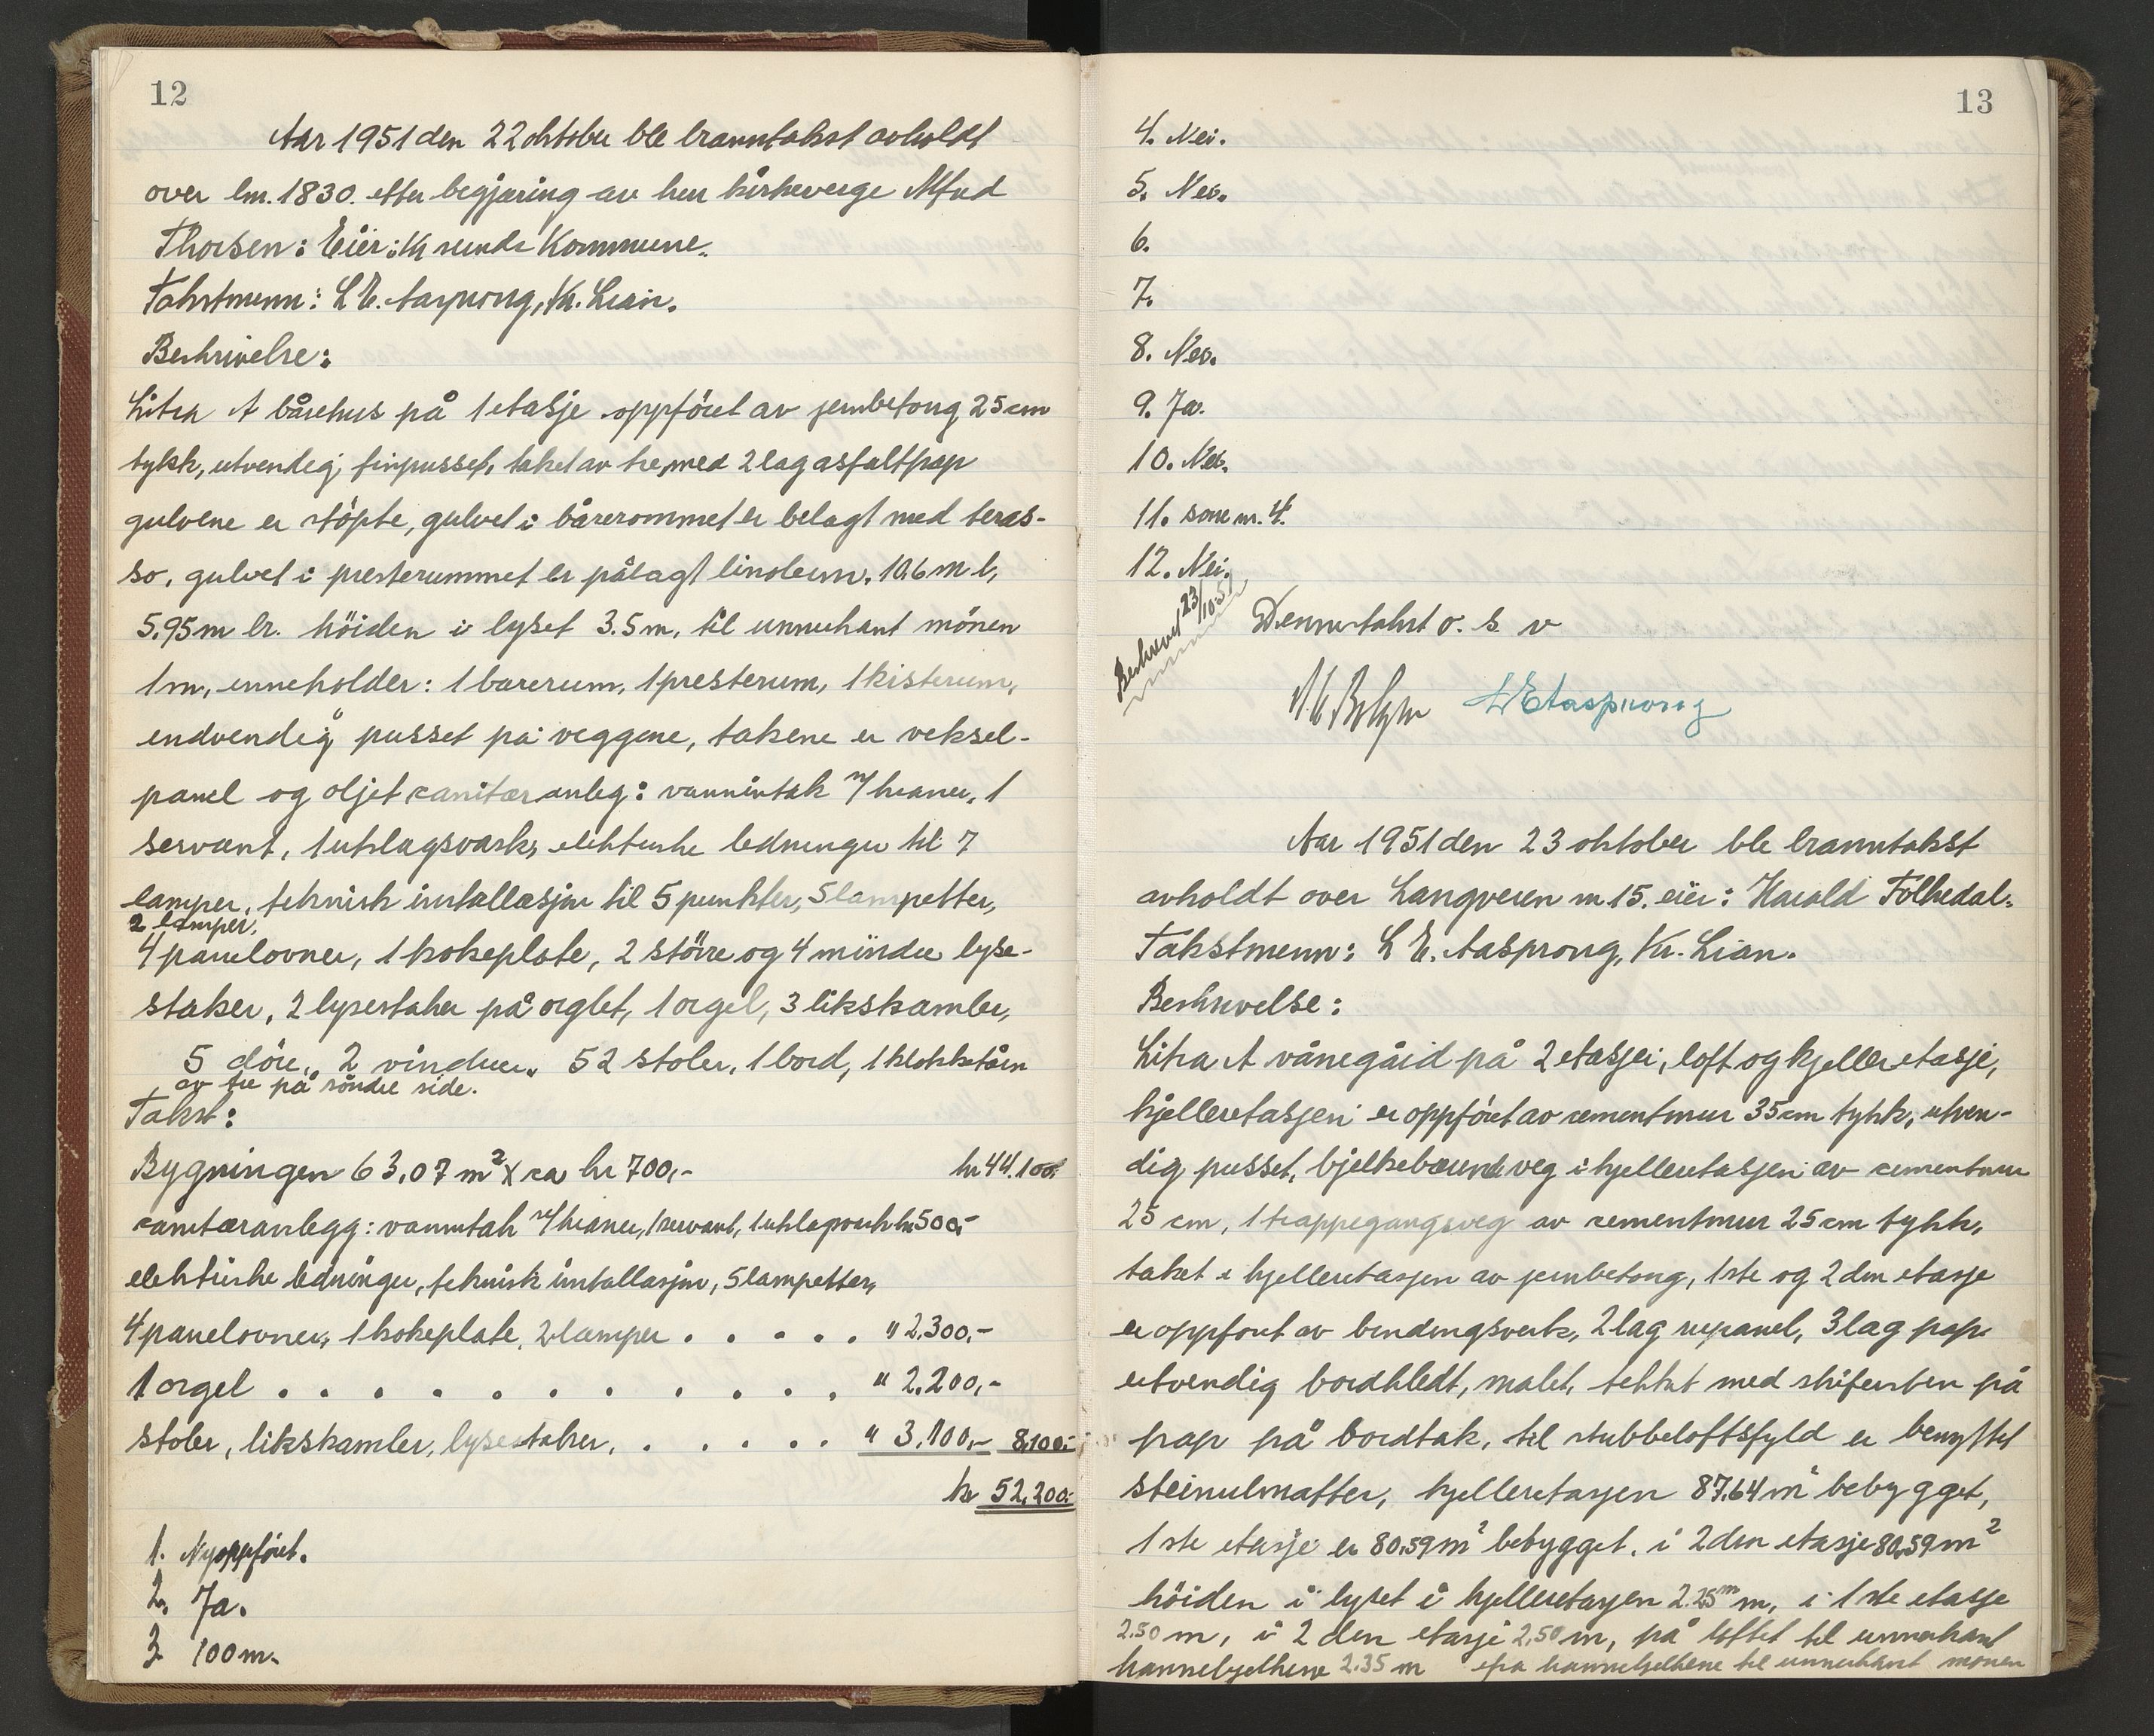 12
Aar 1951 den 22 oktober ble branntakst avholdt
over lnr. 1830. etter begjæring av herr kirkeverge Alfred
Thorsen: Eier: Kr sunds Kommune.
Takstmenn: L E. Aasprong, Kr. Lian.
Beskrivelse:
Litra A bårehus på 1 etasje oppföret av jernbetong 25 cm
tykk, utvendig finpusset, taket av tre, med 2 lag asfaltpap
gulvene er stöpte, gulvet i bårerommet er belagt med teras-
so, gulvet i presterummet er pålagt linoleum. 10.6 m l,
5.95 m br. höiden i lyset 3.5 m, til unnerkant mönen
1 m, inneholder: 1 barerum, 1 presterum, 1 kisterum,
endvendig pusset på veggene, takene er veksel-
panel og oljet sanitæranleg: vanninntak m/ kraner, 1
servant, 1 utslagsvask, elektriske ledninger til 7
lamper, teknisk installasjon til 5 punkter, 5 lampetter,
2 lamper,
4 panelovner, 1 kokeplate, 2 större og 4 mindre lyse-
staker, 2 lysestaker på orglet, 1 orgel, 3 likskamler,
5 döre, 2 vinduer. 52 stoler, 1 bord, 1 klokketårn
av tre på söndre side.
Takst:
Bygningen 63,07 m² X ca kr 700,- kr 44.100,-
sanitæranlegg: vanntak m/ kraner, 1 servant, 1 utslagsvask kr 500,-
elektriske ledninger, teknisk installasjon, 5 lampetter,
4 panelovner, 1 kokeplate, 2 lamper . . . . . " 2.300,-
1 orgel . . . . . . . . . . " 2.200,-
stoler, likskamler, lysestaker, . . . . . " 3.100,- 8.100,-
kr 52.200,-
1. Nyoppföret.
2. Ja.
3. 100 m.
13
4. Nei.
5. Nei.
6.
7.
8. Nei.
9. Ja.
10. Nei.
11. som nr. 4.
12. Nei.
Beskrevet 23/10-51
Denne takst o. s. v
L E Aasprong
Aar 1951 den 23 oktober ble branntakst
avholdt over Langveien nr 15. eier: Harald Folkedal.
Takstmenn: L E. Aasprong, Kr. Lian.
Beskrivelse:
Litra A vånegård på 2 etasjer, loft og kjelleretasje,
kjelleretasjen er oppföret av sementmur 35 cm tykk, utven-
dig pusset, bjelkebærende veg i kjelleretasjen av sementmur
25 cm, 1 trappegangsveg av sementmur 25 cm tykk,
taket i kjelleretasjen av jernbetong, 1ste og 2den etasje
er oppfört av bindingsverk, 2 lag rupanel, 3 lag pap.
utvendig bordkledt, malet, tekket med skifersten på
pap på bordtak, til stubbeloftsfyld er benyttet
steinulmatter, kjelleretasjen 87.64 m² bebygget,
1ste etasje er 80.59 m² bebygget. i 2den etasje 80,59 m²
höiden i lyset i kjelleretasjen 2.25 m m, i 1ste etasje
2.50 m, i 2den etasje 2,50 m, på loftet til unnerkant
hannebjelkene 2.35 m fra hannebjelkene til unnerkant mönen